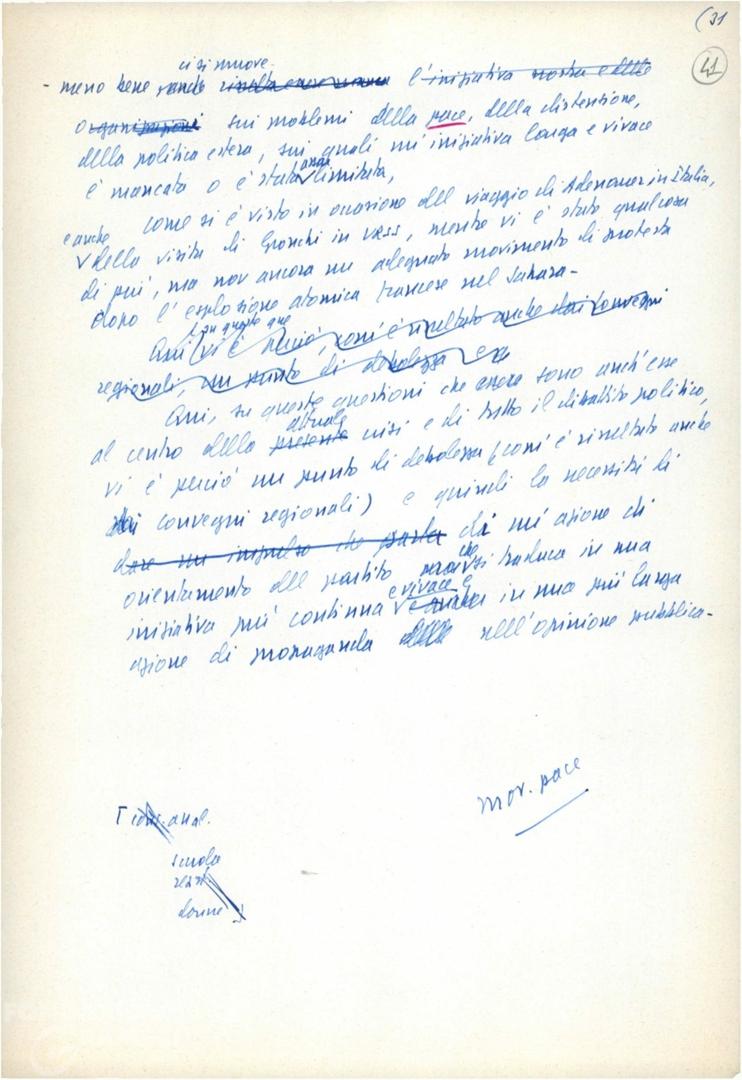 (31
41
ci si muove
- meno bene anche risulta essere l'iniziativa nostra e delle
organizzazioni sui problemi della pace, della distensione,
della politica estera, sui quali un'iniziativa larga e vivace
è mancata o è stata assai limitata,
e anche come si è visto in occasione del viaggio di Adenauer in Italia,
della visita di Gronchi in URSS, mentre vi è stato qualcosa
di più, ma non ancora un adeguato movimento di protesta
dopo l'esplosione atomica francese nel Sahara -
su queste que
Qui, vi è perciò, com'è risultato anche dai convegni
regionali, un punto di debolezza e
Qui, su queste questioni che essere sono anch'esse
al centro della presente attuale crisi e di tutto il dibattito politico,
vi è perciò un punto di debolezza (com'è risultato anche
dai convegni regionali) e quindi la necessità di
dare un impulso che parta di un'azione di
orientamento del partito che si traduca in una
iniziativa più continua e vivace e in una più larga
azione di propaganda nell'opinione pubblica -
mov. pace
anal.
scuola
donne